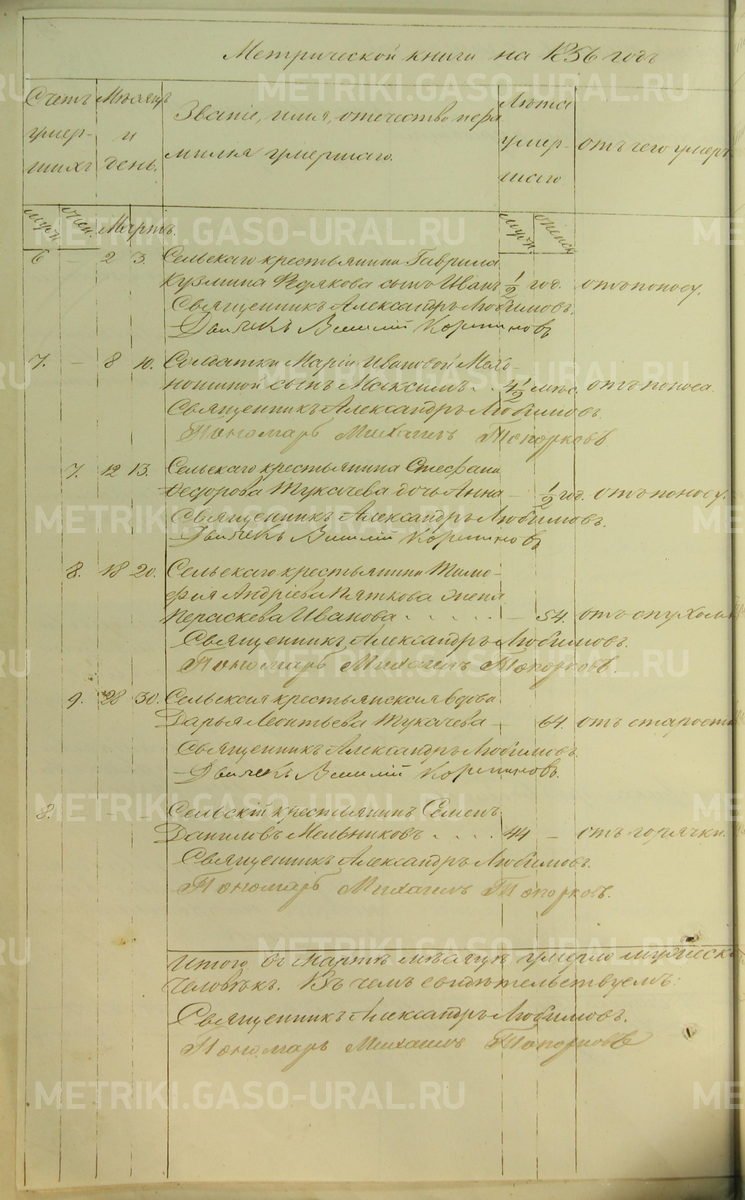 Метрической книги на 1856 годъ
Счетъ умер- шихъ
Мѣсяцъ и день.
Званіе, имя, отчество и фа
милия умершаго.
Лѣта умер- шаго
отъ чего умеръ
муж. женск.
Мартъ.
муж. женск.
6 — 2 3. Сельскаго крестьянина Гаврила
Кузмина сынъ Иванъ ½ год. отъ поносу.
Священникъ Александръ Любимовъ.
Дьячекъ Василій
7. — 8 10. Солдатки Маріи Ивановой
сынъ Максимъ . . 4 ½ мѣс. отъ поноса
Священникъ Александръ Любимовъ
Пономарь Михаилъ Топорковъ
7. 12 13. Сельскаго крестьянина Стефана
Федорова Тукачева дочь Анна — ½ год. отъ поносу.
Священникъ Александръ Любимовъ.
Дьячекъ Василій
8. 18 20. Сельскаго крестьянина Тимо-
фея Андріева Пяткова жена
Параскева Иванова . . . . . — 54. отъ опухоли
Священникъ Александръ Любимовъ.
Пономарь Михаилъ Топорковъ.
9. 28 30. Сельская крестьянская вдова
Дарья Леонтьева Тукачева — 64. отъ старости
Священникъ Александръ Любимовъ.
Дьячекъ Василій
8. — — Сельскій крестьянинъ Семенъ
Даниловъ Мельниковъ . . . . 44 — отъ горячки.
Священникъ Александръ Любимовъ.
Пономарь Михаилъ Топорковъ.
Итого въ Мартѣ мѣсяцѣ умерло
человѣкъ. Въ чемъ свидѣтельствуемъ:
Священникъ Александръ Любимовъ.
Пономарь Михаилъ Топорковъ
METRIKI.GASO-URAL.RU